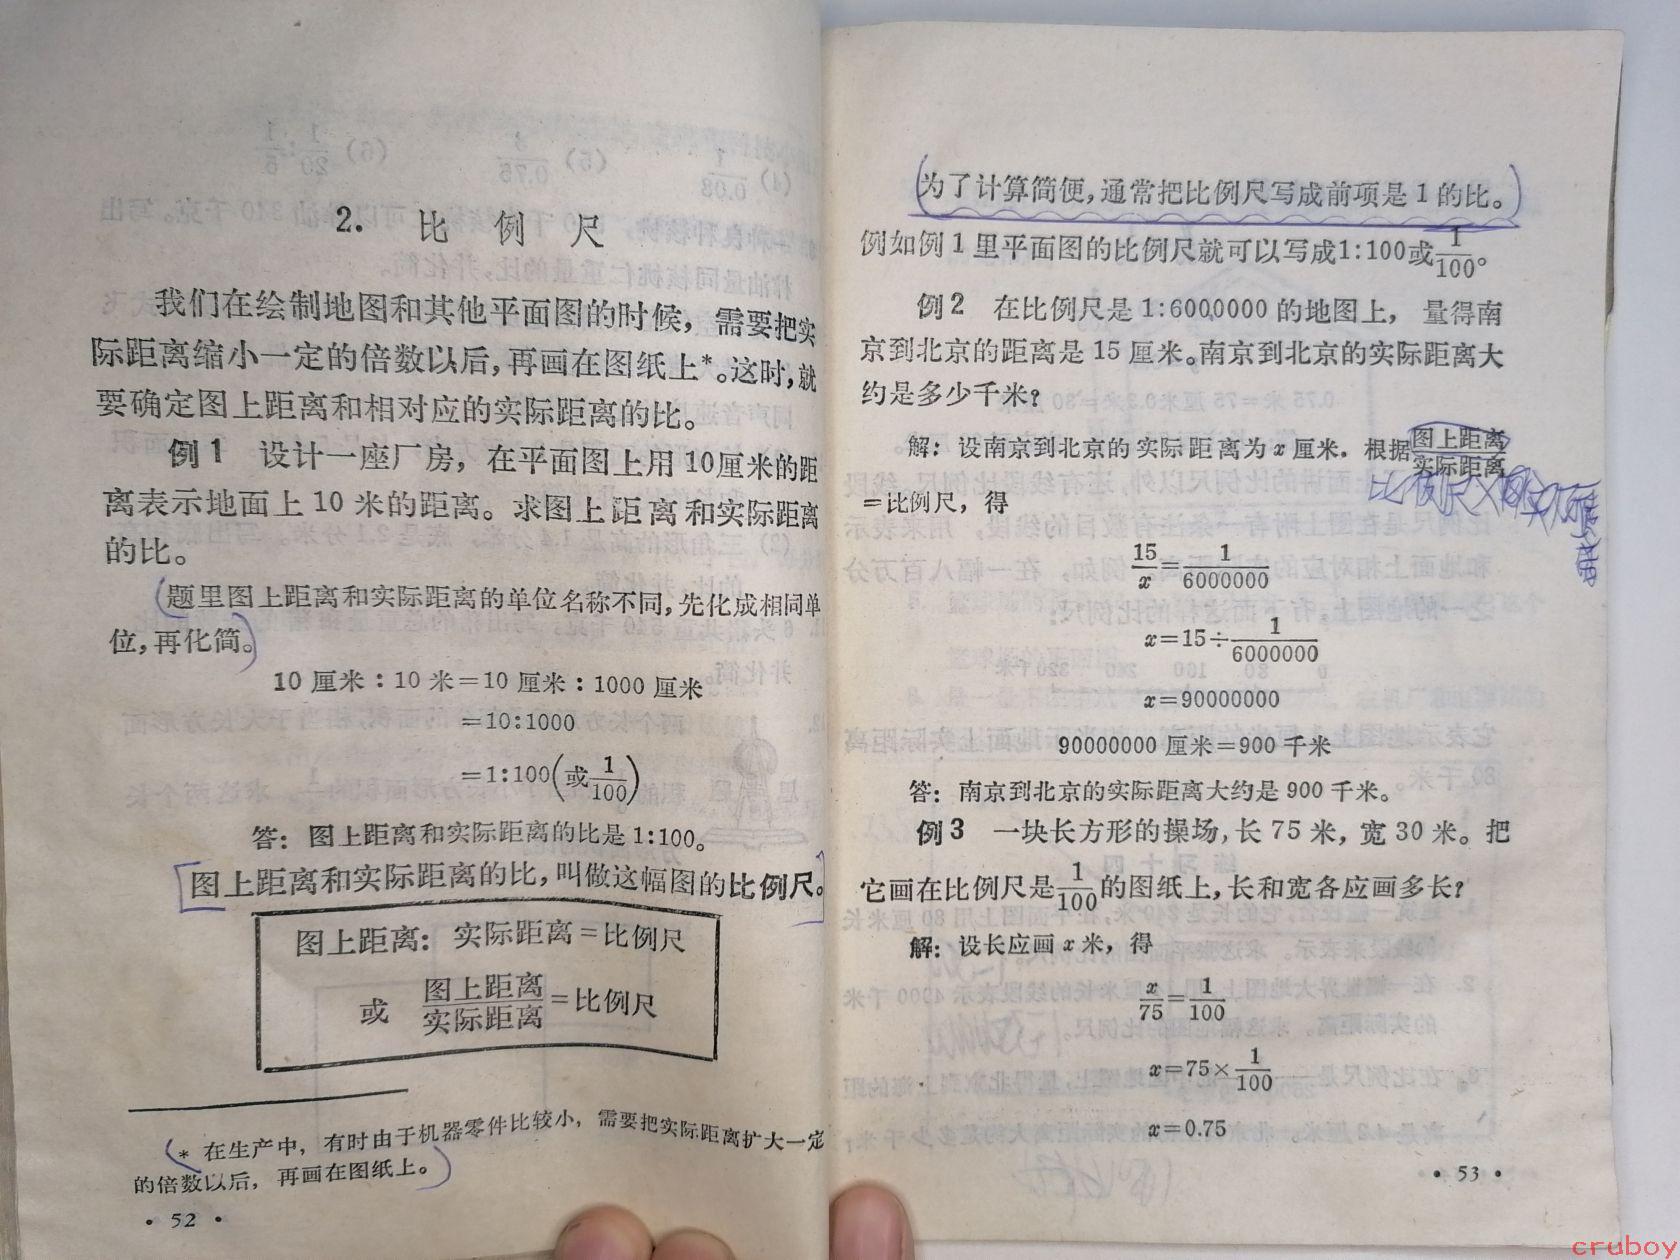 2. 比例尺
我们在绘制地图和其他平面图的时候，需要把实
际距离缩小一定的倍数以后，再画在图纸上*。这时，就
要确定图上距离和相对应的实际距离的比。
例1 设计一座厂房，在平面图上用10厘米的距
离表示地面上10米的距离。求图上距离和实际距离
的比。
题里图上距离和实际距离的单位名称不同，先化成相同单
位，再化简。
10厘米：10米=10厘米：1000厘米
=10:1000
=1:100(或1/100)
答：图上距离和实际距离的比是1:100。
图上距离和实际距离的比，叫做这幅图的比例尺。
图上距离：实际距离=比例尺
或 图上距离/实际距离=比例尺
* 在生产中，有时由于机器零件比较小，需要把实际距离扩大一定
的倍数以后，再画在图纸上。
· 52 ·
为了计算简便，通常把比例尺写成前项是1的比。
例如例1里平面图的比例尺就可以写成1:100或1/100。
例2 在比例尺是1:6000000的地图上，量得南
京到北京的距离是15厘米。南京到北京的实际距离大
约是多少千米？
解：设南京到北京的实际距离为x厘米。根据图上距离/实际距离
=比例尺，得
15/x=1/6000000
x=15÷1/6000000
x=90000000
90000000厘米=900千米
答：南京到北京的实际距离大约是900千米。
例3 一块长方形的操场，长75米，宽30米。把
它画在比例尺是1/100的图纸上，长和宽各应画多长？
解：设长应画x米，得
x/75=1/100
x=75×1/100
x=0.75
· 53 ·
cruboy